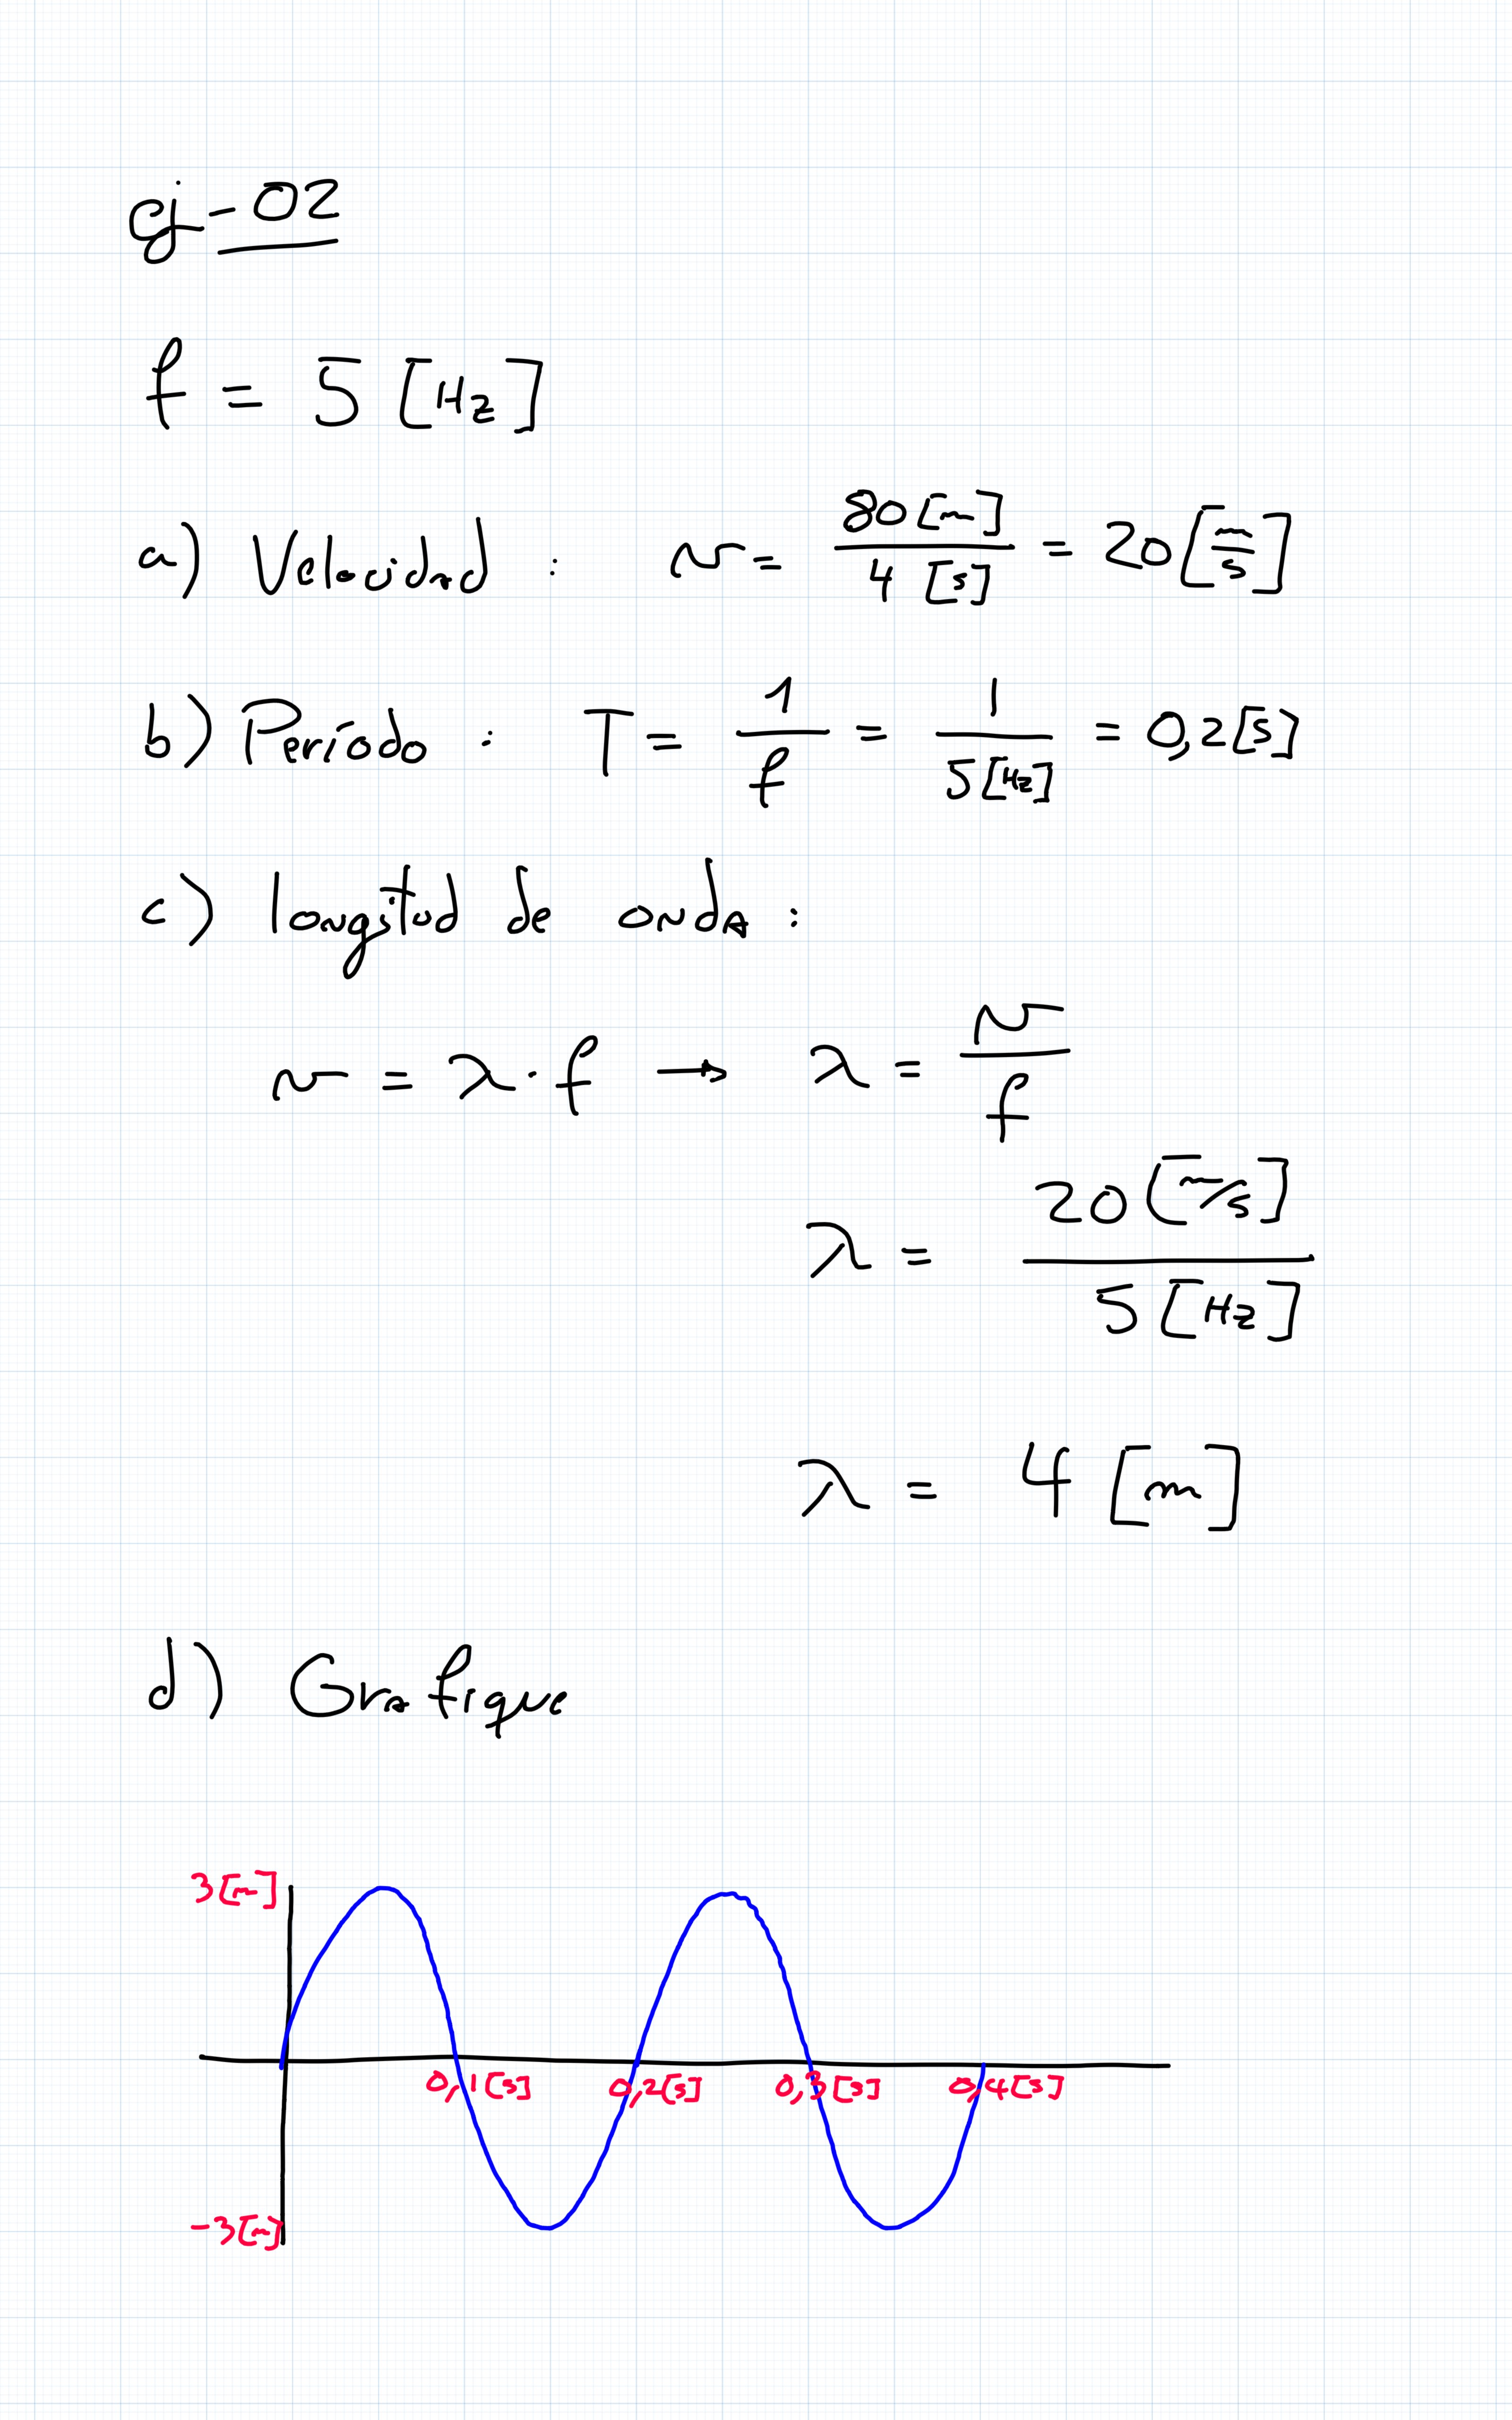 ej-02
f = 5 [Hz]
a) Velocidad : v = 80[m]/4[s] = 20[m/s]
b) Período : T = 1/f = 1/5[Hz] = 0,2[s]
c) longitud de onda :
v = λ·f → λ = v/f
λ = 20[m/s]/5[Hz]
λ = 4 [m]
d) Grafique
3[m]
0,1[s] 0,2[s] 0,3[s] 0,4[s]
-3[m]